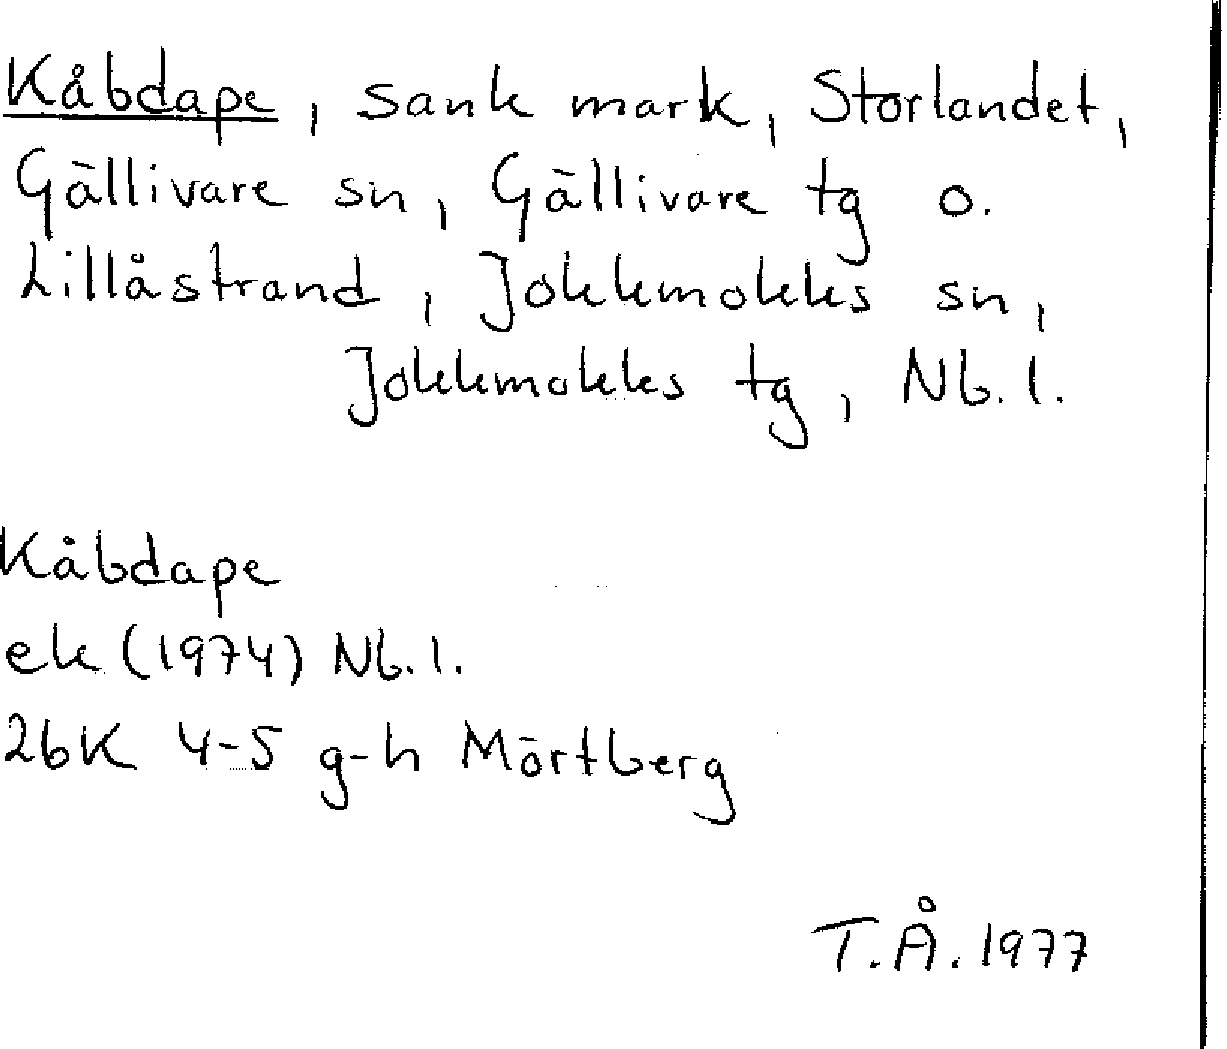 Kåbdape, sank mark, Storlandet,
Gällivare sn, Gällivare tg o.
Lillåstrand, Jokkmokks sn,
Jokkmokks tg, Nb. l.
Kåbdape
ek (1974) Nb. l.
26K 4-5 g-h Mörtberg
T.Å. 1977